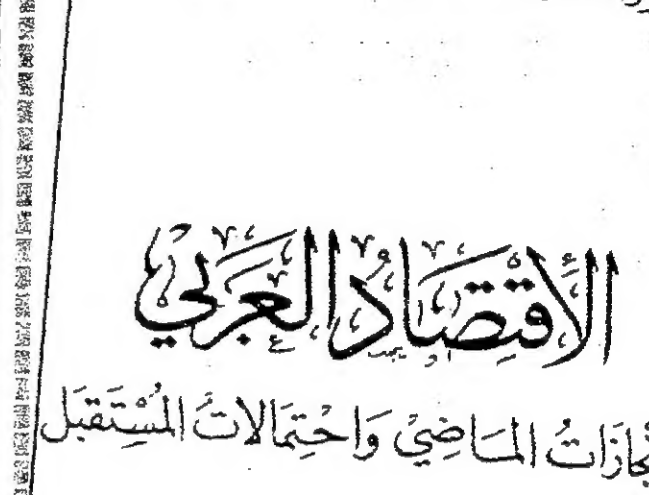 الأقتصاد العربي
نجازات الماضي واحتمالات المستقبل